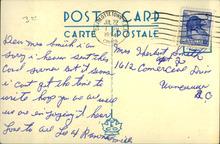 3-
POST CARD
CARTE POSTALE
Dear Mrs Smith i am
sorry i havent sent this
card sooner but it seems
i cant get the time to
write hope you are well
we are enjoying it here
Love to all
Mrs Herbert Smith
1612 Comercial Drive
Vancouver
B.C.